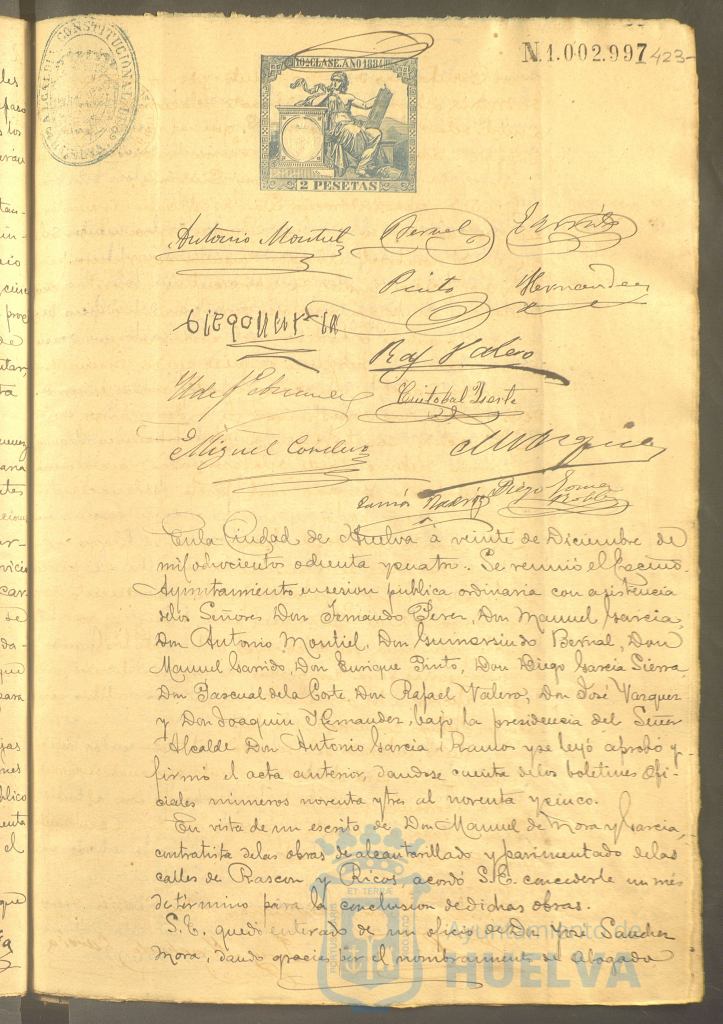 N.1.002.997 423-
ALCALDIA CONSTITUCIONAL HUELVA
10ª CLASE. AÑO 1884
2 PESETAS
Antonio Montiel Bernal
Pinto Hernandez
Raf Valero
Cristobal Yarte
Miguel Cordero
Diego Gomez
Robles
En la Ciudad de Huelva á veinte de Diciembre de
mil ochocientos ochenta y cuatro. Se reunió el Excmo.
Ayuntamiento en sesion publica ordinaria con asistencia
de los Señores Don Fernando Perez, Don Manuel Garcia,
Don Antonio Montiel, Don Gumersindo Bernal, Don
Manuel Garrido, Don Enrique Pinto, Don Diego Garcia Sierra,
Don Pascual de la Corte, Don Rafael Valero, Don José Vazquez
y Don Joaquin Hernandez, bajo la presidencia del Señor
Alcalde Don Antonio Garcia Ramos y se leyó aprobó y
firmó el acta anterior, dandose cuenta de los boletines Ofi-
ciales numeros noventa y tres al noventa y cinco.
En vista de un escrito de Don Manuel de Mora y Garcia,
contratista de las obras de alcantarillado y pavimentado de las
calles de Rascon y Ricos acordó S.E. concederle un mes
de término para la conclusion de dichas obras.
S.E. quedó enterado de un oficio de Don José Sanchez
Mora, dando gracias por el nombramiento de Abogado
Ayuntamiento de
HUELVA